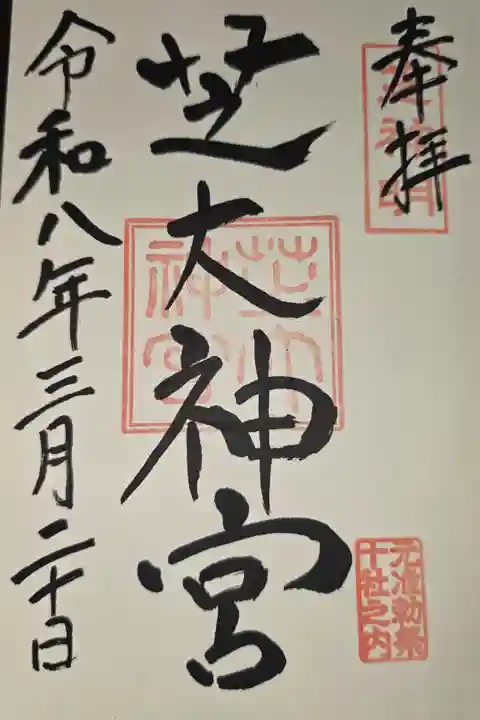 奉拝
芝大神宮
芝大神宮
元准勅祭
十社之内
令和八年三月二十日